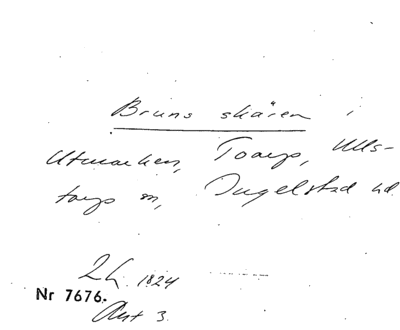 Bruns skären i
Utmarken, Toarp, Ulls-
torps sn, Ingelstad hd
Lh 1824
Nr 7676.
Akt 3